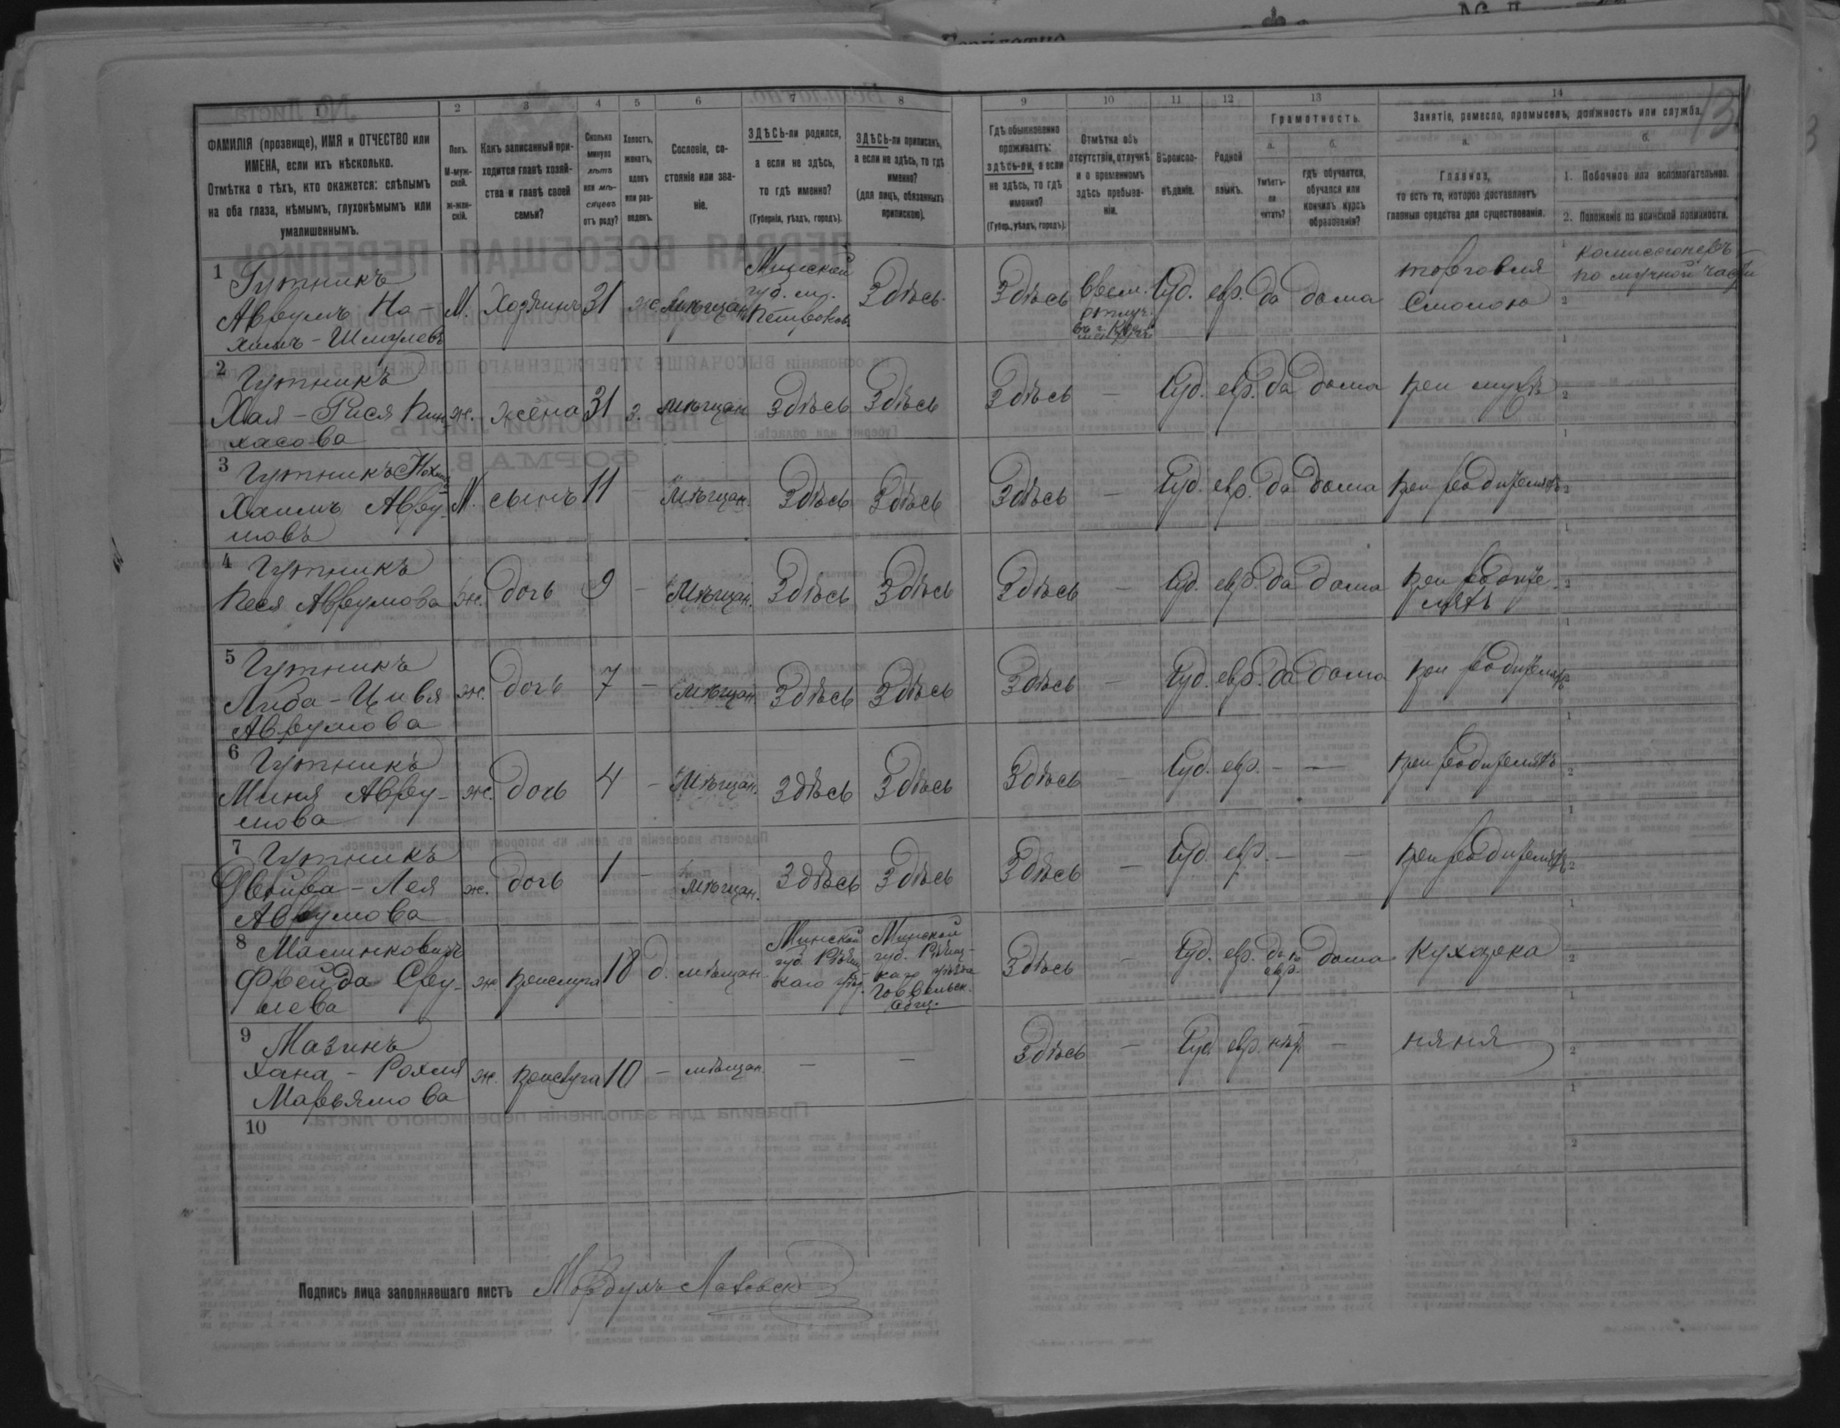 1 2 3 4 5 6 7 8 9 10 11 12 13 14
ФАМИЛІЯ (прозвище), ИМЯ и ОТЧЕСТВО или
ИМЕНА, если ихъ нѣсколько.
Отмѣтка о тѣхъ, кто окажется: слѣпымъ
на оба глаза, нѣмымъ, глухонѣмымъ или
умалишеннымъ.
Полъ.
М-муж-
ской.
ж-жен-
скій.
Какъ записанный при-
ходится главѣ хозяй-
ства и главѣ своей
семьи?
Сколько
минуло
лѣтъ
или мѣ-
сяцевъ
отъ роду?
Холостъ,
женатъ,
вдовъ
или раз-
веденъ.
Сословіе, со-
стояніе или зва-
ніе.
ЗДѢСЬ-ли родился,
а если не здѣсь,
то гдѣ именно?
(Губернія, уѣздъ, городъ).
ЗДѢСЬ-ли приписанъ,
а если не здѣсь, то гдѣ
именно?
(для лицъ, обязанныхъ
припискою).
Гдѣ обыкновенно
проживаетъ:
здѣсь-ли, а если
не здѣсь, то гдѣ
именно?
(Губер., уѣздъ, городъ).
Отмѣтка объ
отсутствіи, отлучкѣ
и о временномъ
здѣсь пребыва-
ніи.
Вѣроиспо-
вѣданіе.
Родной
языкъ.
Грамотность.
а.
Умѣетъ-
ли
читать?
б.
гдѣ обучается,
обучался или
кончилъ курсъ
образованія?
Занятіе, ремесло, промыселъ, должность или служба.
а.
Главное,
то есть то, которое доставляетъ
главныя средства для существованія.
б.
1. Побочное или вспомогательное.
2. Положеніе по воинской повинности.
13
1 Гутникъ
Аврумъ На-
химъ-Шмулевъ
М. Хозяинъ 31 ж мѣщан.
Минской
губ. м.
Петриков.
Здѣсь Здѣсь
Іуд. евр. да дома
торговля
Смолою
комисіонеръ
по мучной части
2 Гутникъ
Хая-Рися Пин-
хасова
ж. жена 31 з. мѣщан Здѣсь Здѣсь Здѣсь — Іуд. евр. да дома при мужѣ
3 Гутникъ
Хаимъ Авру-
мовъ
М. сынъ 11 — мѣщан. Здѣсь Здѣсь Здѣсь — Іуд. евр. да дома при родителяхъ
4 Гутникъ
Песя Аврумова
ж. дочь 9 — мѣщан. Здѣсь Здѣсь Здѣсь — Іуд. евр. да дома при родите-
ляхъ
5 Гутникъ
Либа-Цивя
Аврумова
ж. дочь 7 — мѣщан. Здѣсь Здѣсь Здѣсь — Іуд. евр. да дома при родителяхъ
6 Гутникъ
Миня Авру-
мова
ж. дочь 4 — мѣщан. Здѣсь Здѣсь Здѣсь — Іуд. евр. — — при родителяхъ
7 Гутникъ
Двойра-Лея
Аврумова
ж. дочь 1 — мѣщан. Здѣсь Здѣсь Здѣсь — Іуд. евр. — — при родителяхъ
8 Малинковичъ
Фрейда Сру-
лева
ж прислуга 18 д. мѣщан.
Минской
губ. Рѣчиц-
каго у.
Минской
губ. Рѣчиц-
каго уѣзда
общ.
Здѣсь — Іуд. евр. да по
евр. дома кухарка
9 Мазинъ
Хана-Рохля
Марьямова
ж. прислуга 10 — мѣщан. — — Здѣсь — Іуд евр. нѣт — няня
10
Подпись лица заполнявшаго листъ